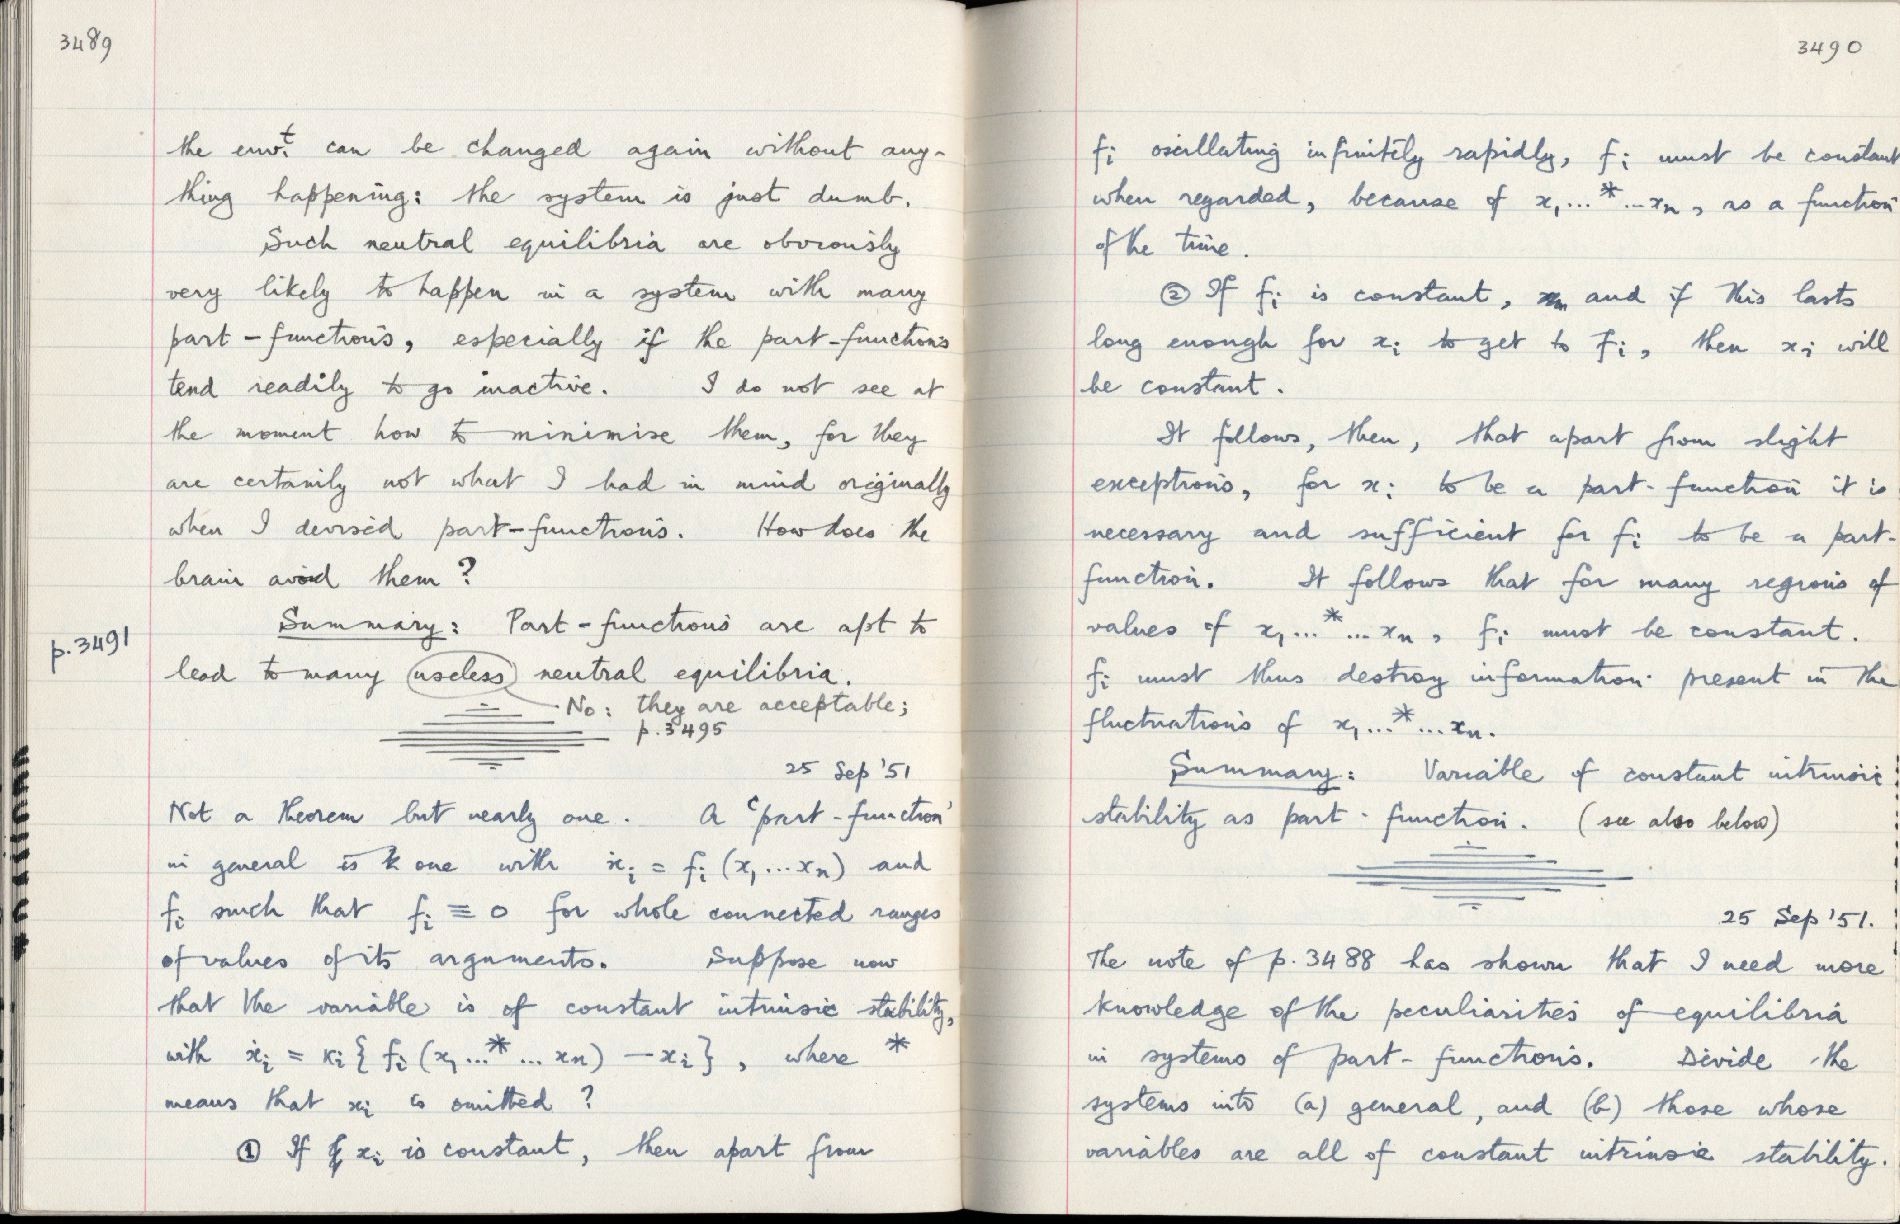 3489
the envt. can be changed again without any-
thing happening: the system is just dumb.
Such neutral equilibria are obviously
very likely to happen in a system with many
part-functions, especially if the part-functions
tend readily to go inactive. I do not see at
the moment how to minimise them, for they
are certainly not what I had in mind originally
when I devised part-functions. How does the
brain avoid them?
Summary: Part-functions are apt to
p.3491
lead to many useless neutral equilibria.
No: they are acceptable;
p.3495
25 Sep '51
Not a theorem but nearly one. A 'part-function'
in general is one with ẋi = fi (x1...xn) and
fi such that fi ≡ 0 for whole connected ranges
of values of its arguments. Suppose now
that the variable is of constant intrinsic stability,
with ẋi = κi{fi (x1...*...xn) – xi}, where *
means that xi is omitted?
① If xi is constant, then apart from
3490
fi oscillating infinitely rapidly, fi must be constant
when regarded, because of x1...*...xn, as a function
of the time.
② If fi is constant, and if this lasts
long enough for xi to get to fi, then xi will
be constant.
It follows, then, that apart from slight
exceptions, for xi to be a part-function it is
necessary and sufficient for fi to be a part-
function. It follows that for many regions of
values of x1...*...xn, fi must be constant.
fi must thus destroy information present in the
fluctuations of x1...*...xn.
Summary: Variable of constant intrinsic
stability as part-function. (see also below)
25 Sep '51.
The note of p.3488 has shown that I need more
knowledge of the peculiarities of equilibria
in systems of part-functions. Divide the
systems into (a) general, and (b) those whose
variables are all of constant intrinsic stability.